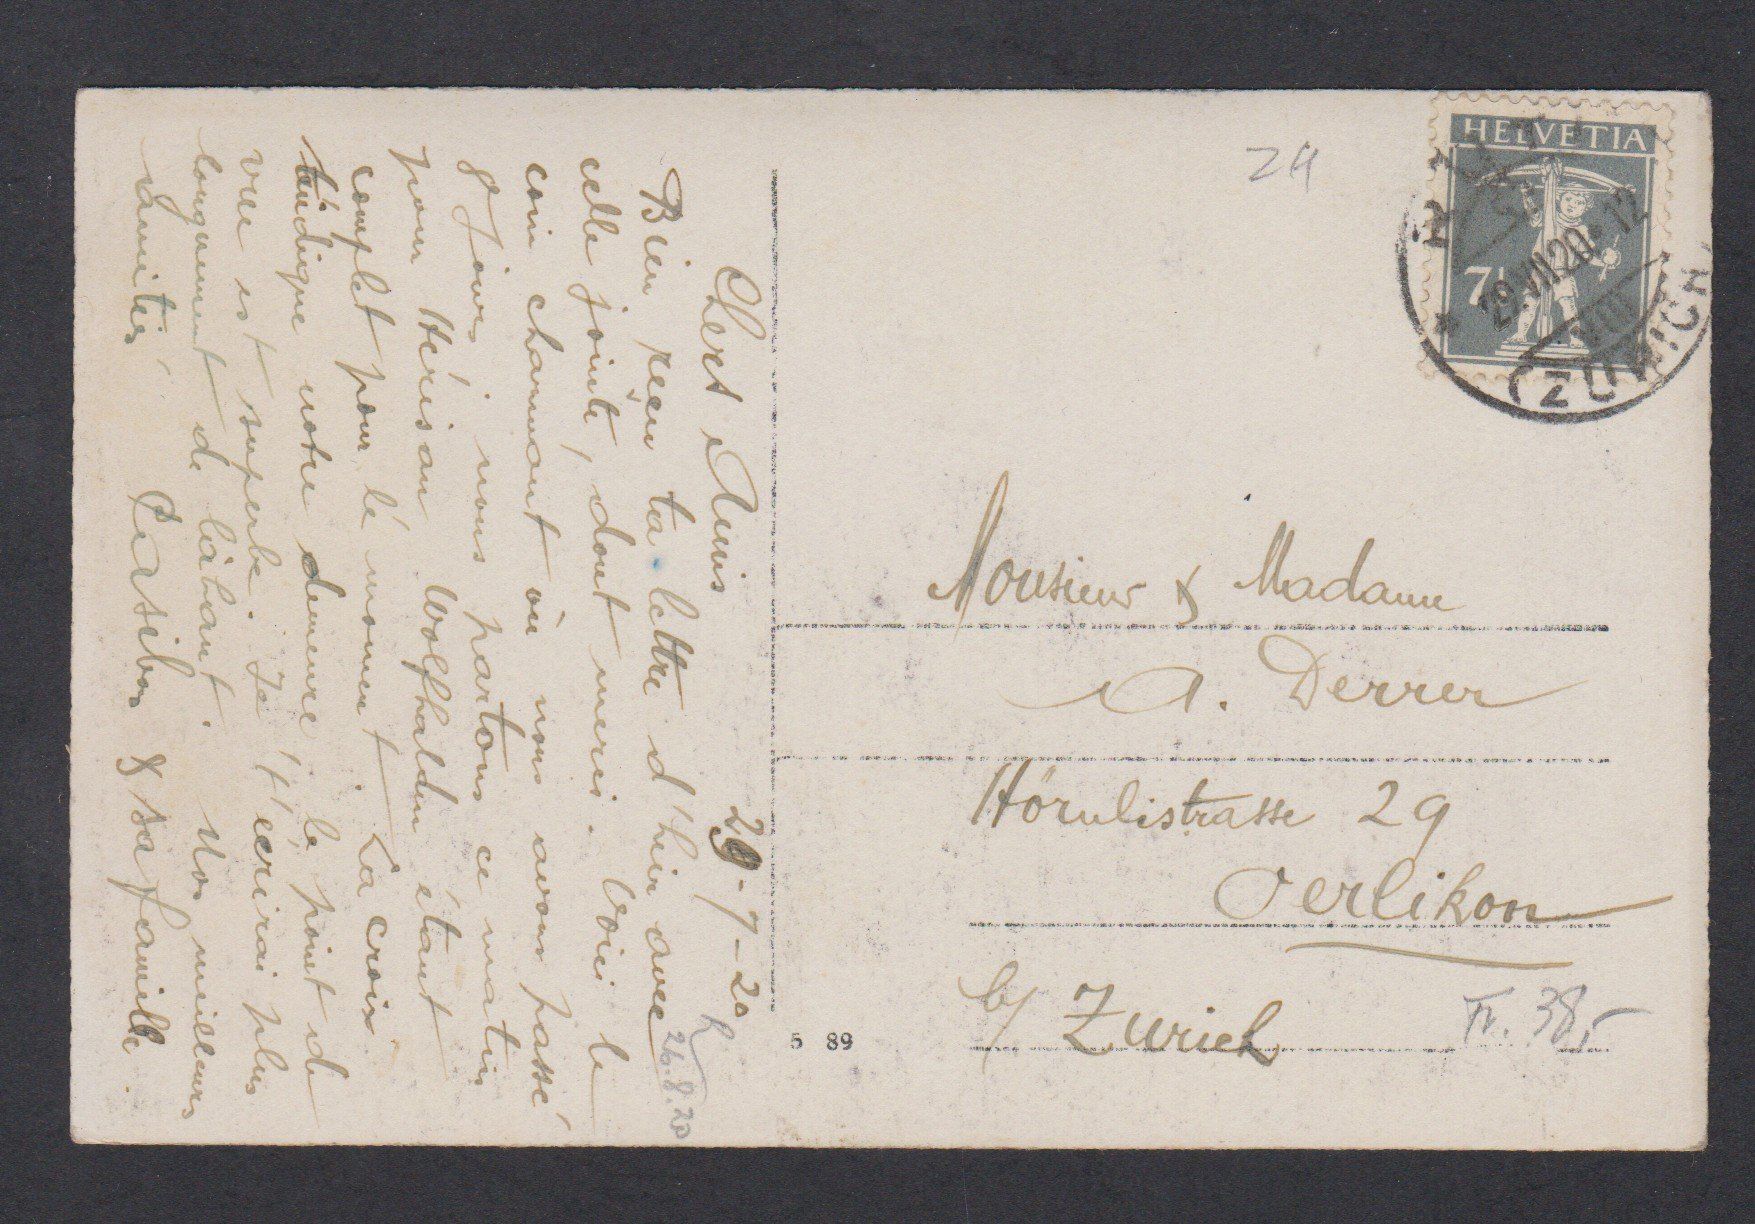 29-7-20
Chers Amis
Bien reçu ta lettre d'hier avec
celle jointe, dont merci. Voici le
coin charmant où nous avons passé
8 jours, nous partons ce matin
pour Hérisau Wolfhalden étant
complet pour le moment. La croix
indique notre demeure, le point de
vue est superbe. Je t'écrirai plus
longument de làhaut. Nos meilleurs
amitiés
& sa famille.
R 26.8.20
5 89
24
HELVETIA
7½
29.VII.20 - 12
VIII
(ZÜRICH)
Monsieur & Madame
A. Derrer
Hörnlistrasse 29
Oerlikon
b/ Zurich
Fr. 38,-